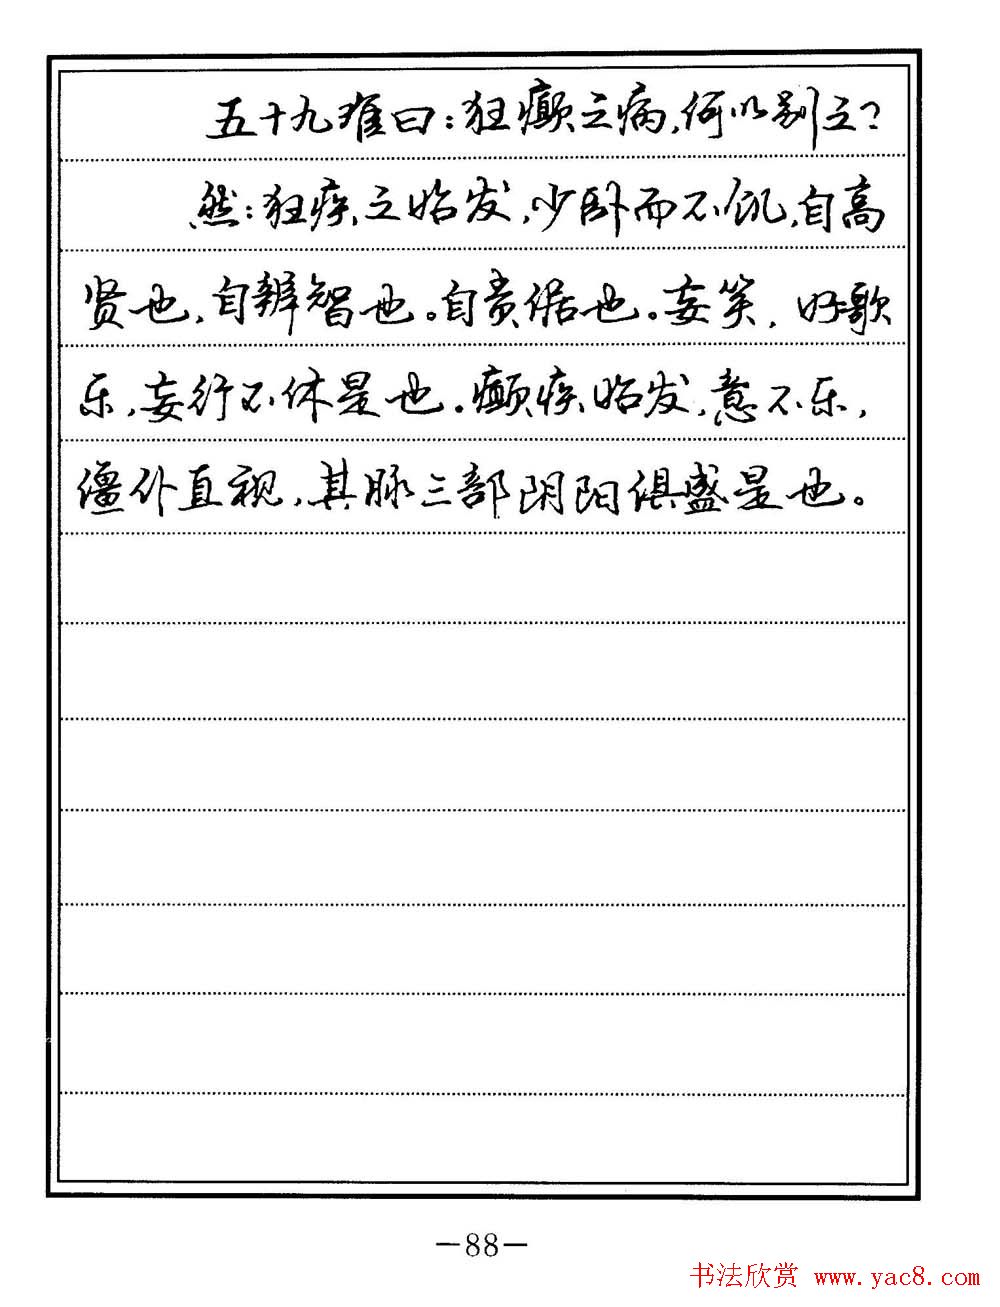 五十九难曰：狂癫之病，何以别之？
然：狂疾之始发，少卧而不饥，自高
贤也，自辨智也。自贵倨也。妄笑，好歌
乐，妄行不休是也。癫疾始发，意不乐，
僵仆直视，其脉三部阴阳俱盛是也。
—88—
书法欣赏 www.yac8.com